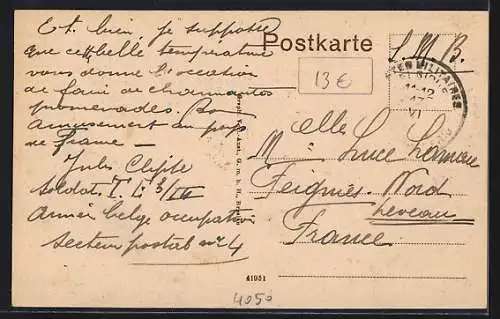 Et bien, je suppose
que cette belle température
vous donne l'occasion
de faire de charmantes
promenades. Bon
amusement au pays
de France —
Jules
Soldat T. L. 3/III
Armée belge occupation
Secteur postal n° 4
Postkarte
S. M. B.
13 €
POSTES MILITAIRES
11-12
VI
Melle Luce
Feignies. Nord
France
41951
4050